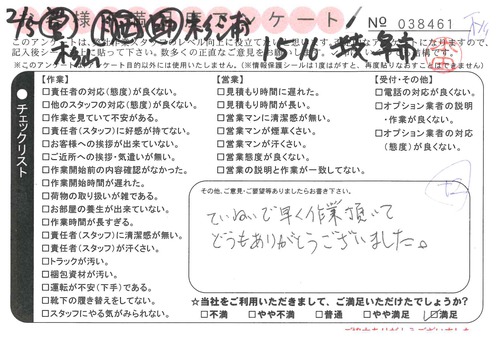 様
ンケート
No 038461
このアンケートは、
※このアンケートはアンケート目的以外には使用いたしません。(※情報保護シールは1度はがすと、再度貼りなおすことはできません)
チェックリスト
【作業】
□責任者の対応(態度)が良くない。
□他のスタッフの対応(態度)が良くない。
□作業を見ていて不安がある。
□責任者(スタッフ)に好感が持てない。
□お客様への挨拶が出来ていない。
□ご近所への挨拶・気遣いが無い。
□作業開始前の内容確認がなかった。
□作業開始時間が遅れた。
□荷物の取り扱いが雑である。
□お部屋の養生が出来ていない。
□作業時間が長すぎる。
□責任者(スタッフ)に清潔感が無い。
□責任者(スタッフ)が汗くさい。
□トラックが汚い。
□梱包資材が汚い。
□運転が不安(下手)である。
□靴下の履き替えをしてない。
□スタッフにやる気がみられない。
【営業】
□見積もり時間に遅れた。
□見積もり時間が長い。
□営業マンに清潔感が無い。
□営業マンが煙草くさい。
□営業マンが汗くさい。
□営業態度が良くない。
□営業の説明と作業が一致してない。
【受付・その他】
□電話の対応が良くない。
□オプション業者の説明
・作業が良くない。
□オプション業者の対応
(態度)が良くない。
その他、ご意見・ご要望等ありましたらお書き下さい。
ていねいで早く作業頂いて
どうもありがとうございました。
☆当社をご利用いただきまして、ご満足いただけたでしょうか?
□不満 □やや不満 □普通 □やや満足 □満足